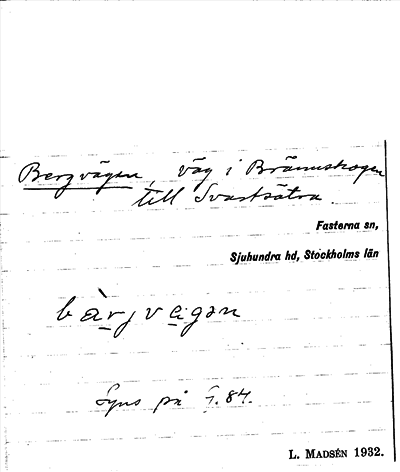 Bergvägen, väg i Brännskogen
till Svartsätra.
Fasterna sn,
Sjuhundra hd, Stockholms län
bàrjvägən
Syns på F. 84.
L. MADSÉN 1932.